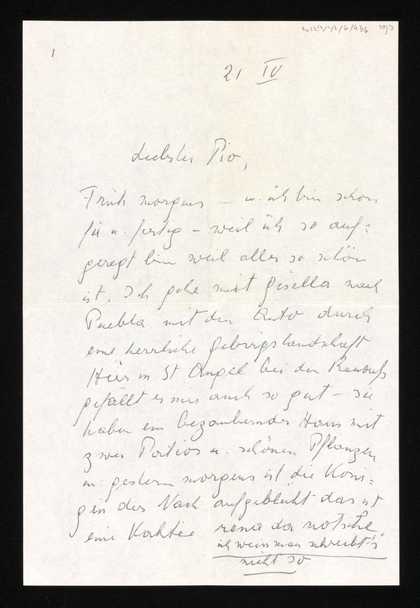 1
21 IV
Liebster Pio,
Früh morgens – u. ich bin schon
fix u. fertig – weil ich so auf=
geregt bin weil alles so schön
ist. Ich gehe mit Gisella nach
Puebla mit den Auto durch
eine herrliche Gebirgslandschaft
Hier in St Angel bei den
gefällt es mir auch so gut – sie
haben ein bezauberndes Haus mit
zwei Patios u. schönen Pflanzen
u. gestern morgens ist die Köni=
gin der Nach aufgeblüht das ist
eine Kaktee reina da notsche
ich weiss man schreibt's
nicht so